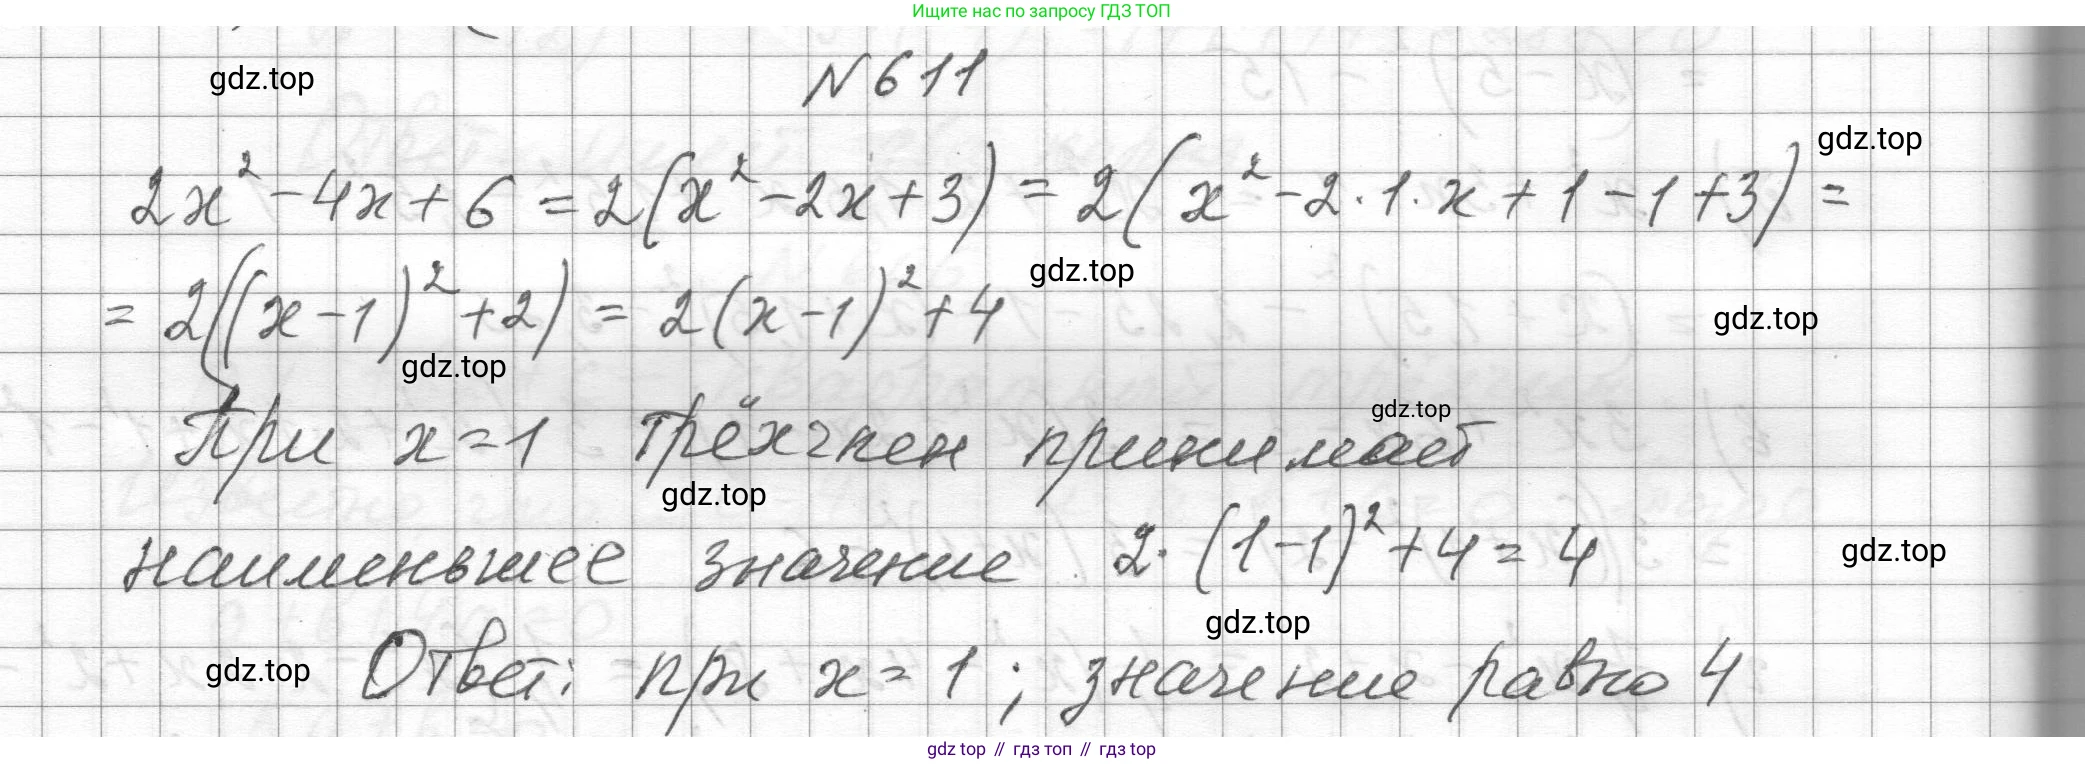 Ищите нас по запросу ГДЗ ТОП
gdz.top
N 611
gdz.top
2x² - 4x + 6 = 2(x² - 2x + 3) = 2(x² - 2·1·x + 1 - 1 + 3) =
gdz.top
= 2((x - 1)² + 2) = 2(x - 1)² + 4
gdz.top
gdz.top
gdz.top
При x = 1 трёхчлен принимает
gdz.top
наименьшее значение 2·(1 - 1)² + 4 = 4
gdz.top
gdz.top
gdz.top
Ответ: при x = 1; значение равно 4
gdz top // гдз топ // гдз top